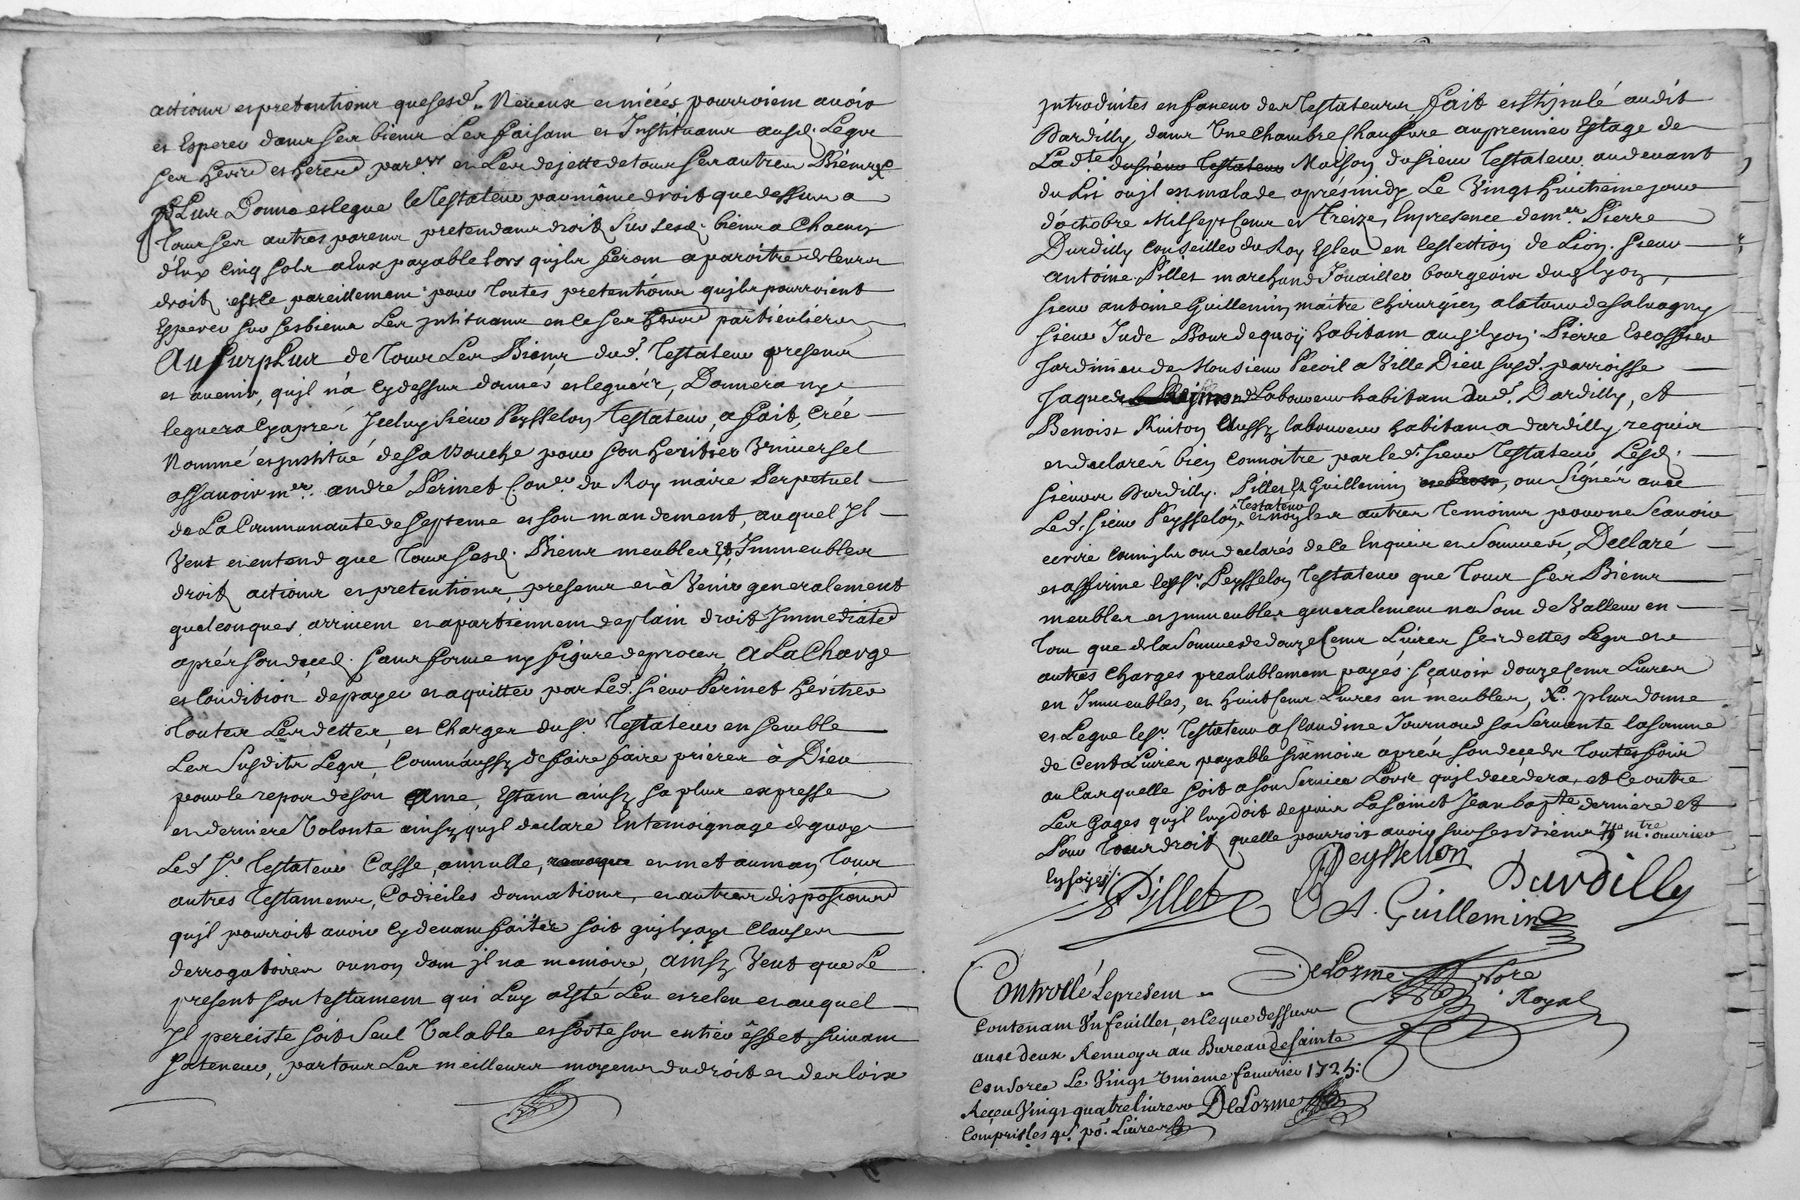 actions et pretentions que sesd. Neveux et niéces pourroient avoir
et Esperer dans ses biens Les faisant et Instituant ausd. Legs
ses herrs et herers par.ers et Les dejette de tous ses autres Biens
PLus Donne et legue le Testateur par même droit que dessus a
Tous ses autres parens pretendans droit Sur sesd. biens a Chacun
d'Eux Cinq sols a Eux payable lors qujls seront aparoitre de leurs
droit et ce pareillement pour toutes pretentions qujls pourroient
Esperer sur ses biens Les jnstituant en ce ses herrs particuliers
Au surpLus de tous Les Biens dud. Testateur presens
et avenir, qujl n'a cy dessus donnés et legués, Donnera ny
leguera cy aprés Jceluy sieur Peysselon Testateur, a fait, Créé
Nommé et jnstitué de sa Bouche pour son heritier Universel
assavoir mer. andré Perinet Coner. du Roy maire Perpetuel
de La Communauté de septeme et son mandement, auquel Jl
Veut et entend que tous sesd. Biens meubles Et Immeubles
droits actions et pretentions, presens et à Venir generalement
quelconques, arrivent et apartiennent de plain droit Jmmediated
aprés son deced. sans forme ny figure de procez, A La Charge
et Condition, de payer et aquitter par Led. sieur Perinet héritier
toutes Les dettes, et Charges du sr. Testateur ensemble
Les Susdits Legs, Comm'áussy de faire faire priéres à Dieu
pour le repos de son Ame, Estant ainsy sa plus expresse
et derniere Volonte ainsy qujl declare En temoignage de quoy
Led. Sr. Testateur Casse, annulle, revoque et met au neant tous
autres Testamens, Codiciles donnations, et autres disposions
qujl pourroit avoir cy devant faites soit qujl y aye Clauses
derrogatoires ou non dont jl na memoire, ainsy Veut que Le
present son testament qui Luy a êsté Leu et releu et auquel
Jl perciste soit Seul Valable et sorte son entier êffet, suivant
sa teneur, par tous Les meilleurs moyens du droit et des loix
jntroduites en faveur des Testateurs fait et stipulé audit
Dardilly dans Une Chambre Chaussure au premier Estage de
La dte du sieur Testateur Maison du sieur Testateur au devant
du Lit ou jl est malade aprés midy Le Vingt huictieme jour
d'octobre Mil sept Cens et Treize, En presence de mer. Pierre
Durdilly Conseiller du Roy Esleu en l'eslection de Lion. sieur
Antoine Pillet marchand Jouaillier bourgeois dud. lyon,
sieur antoine Guillemin maitre Chirurgien a la tour de salvagny
sieur Jude Bourdequoÿ habitant aud. lyon. Pierre Escoffier
Jardinier de Monsieur Pecoil a Ville Dieu susd. parroisse
Jaques Laboureur habitant dud. Dardilly, et
Benoist Ruiton Aussy laboureur habitant a dardilly requis
et declarés bien Connoitre par led. sieur Testateur Lesd.
sieurs Durdilly. Pillet Et Guillemin, ont Signés avec
Led. sieur Peysselon Testateur et non les autres temoins pour ne scavoir
ecrire Comjls ont declarés de ce Enquis et Sommés, Declaré
et affirme le sr. Peysselon Testateur que tous ses Biens
meubles et jmmeubles generalement na sont de Valleur en
tout que de la Somme de douze Cens Livres ses dettes Legs et
autres Charges prealablement payés. sçavoir douze Cens Livres
en Immeubles, et huict Cens Livres en meubles, plus donne
et Legue le sr. Testateur a Claudine Tournoud sa servante la somme
de Cent Livres payable six mois aprés son deceds toutes fois
au Cas quelle soit a son Service Lors qujl decedera, et Ce outre
Les Gages qujl luy doit depuis La sainct Jean bapte derniere et
Pour tous droit quelle pourroit avoir sur ses biens
Peysselon
Pillet Durdilly
A. Guillemin
DeLorme Nore
Royal
Controllé Le present
Contenant Un feuillet, et ce que dessus
avec deux Renvoys au Bureau de sainte
Consorce Le Vingt Unieme fevrier 1725:
Receu Vingt quatre livres DeLorme
Compris les 4s. po. Livres